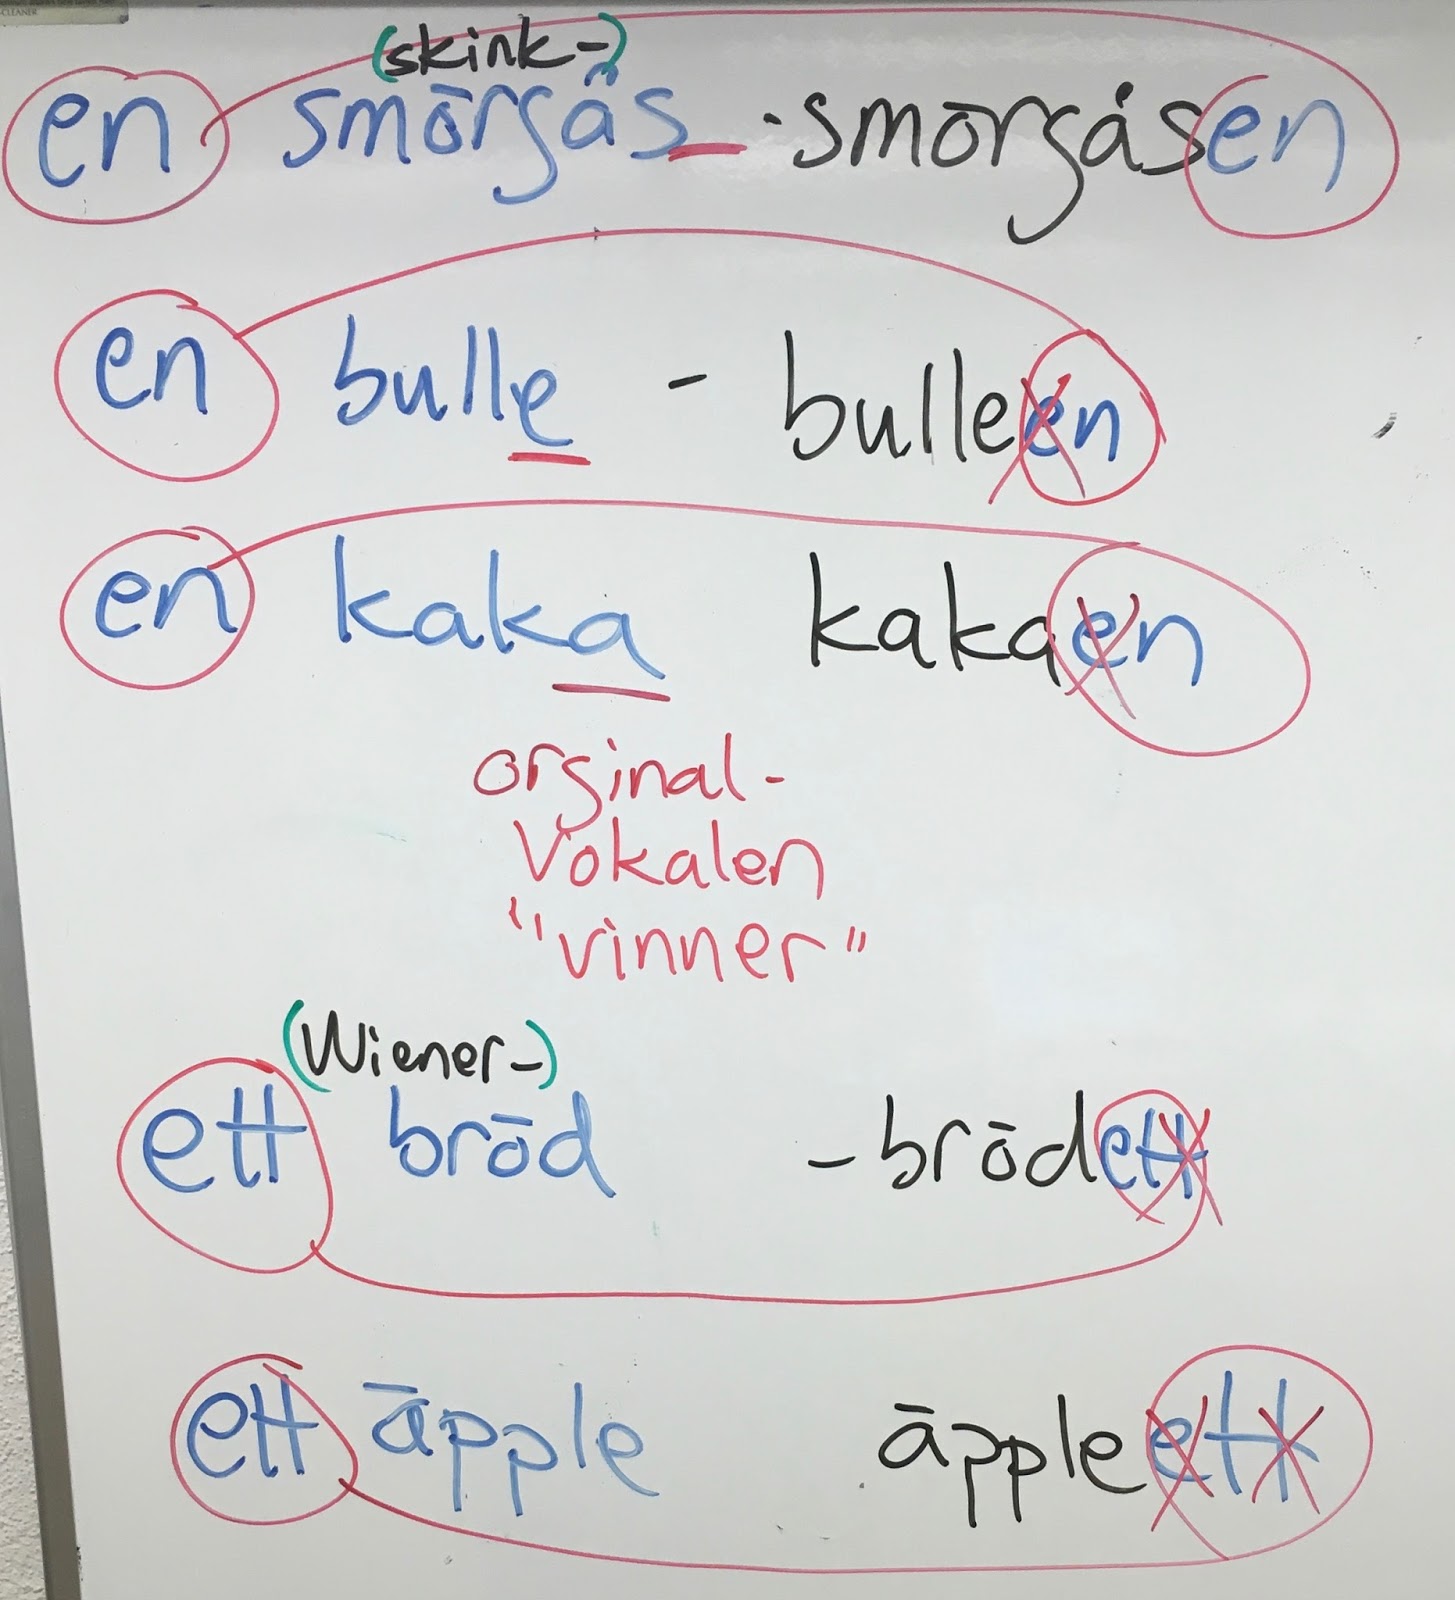 CLEANER
(skink-)
en smörgås - smörgåsen
en bulle - bulleen
en kaka kakaen
orginal-
Vokalen
"vinner"
(Wiener-)
ett bröd - brödett
ett äpple äppleett